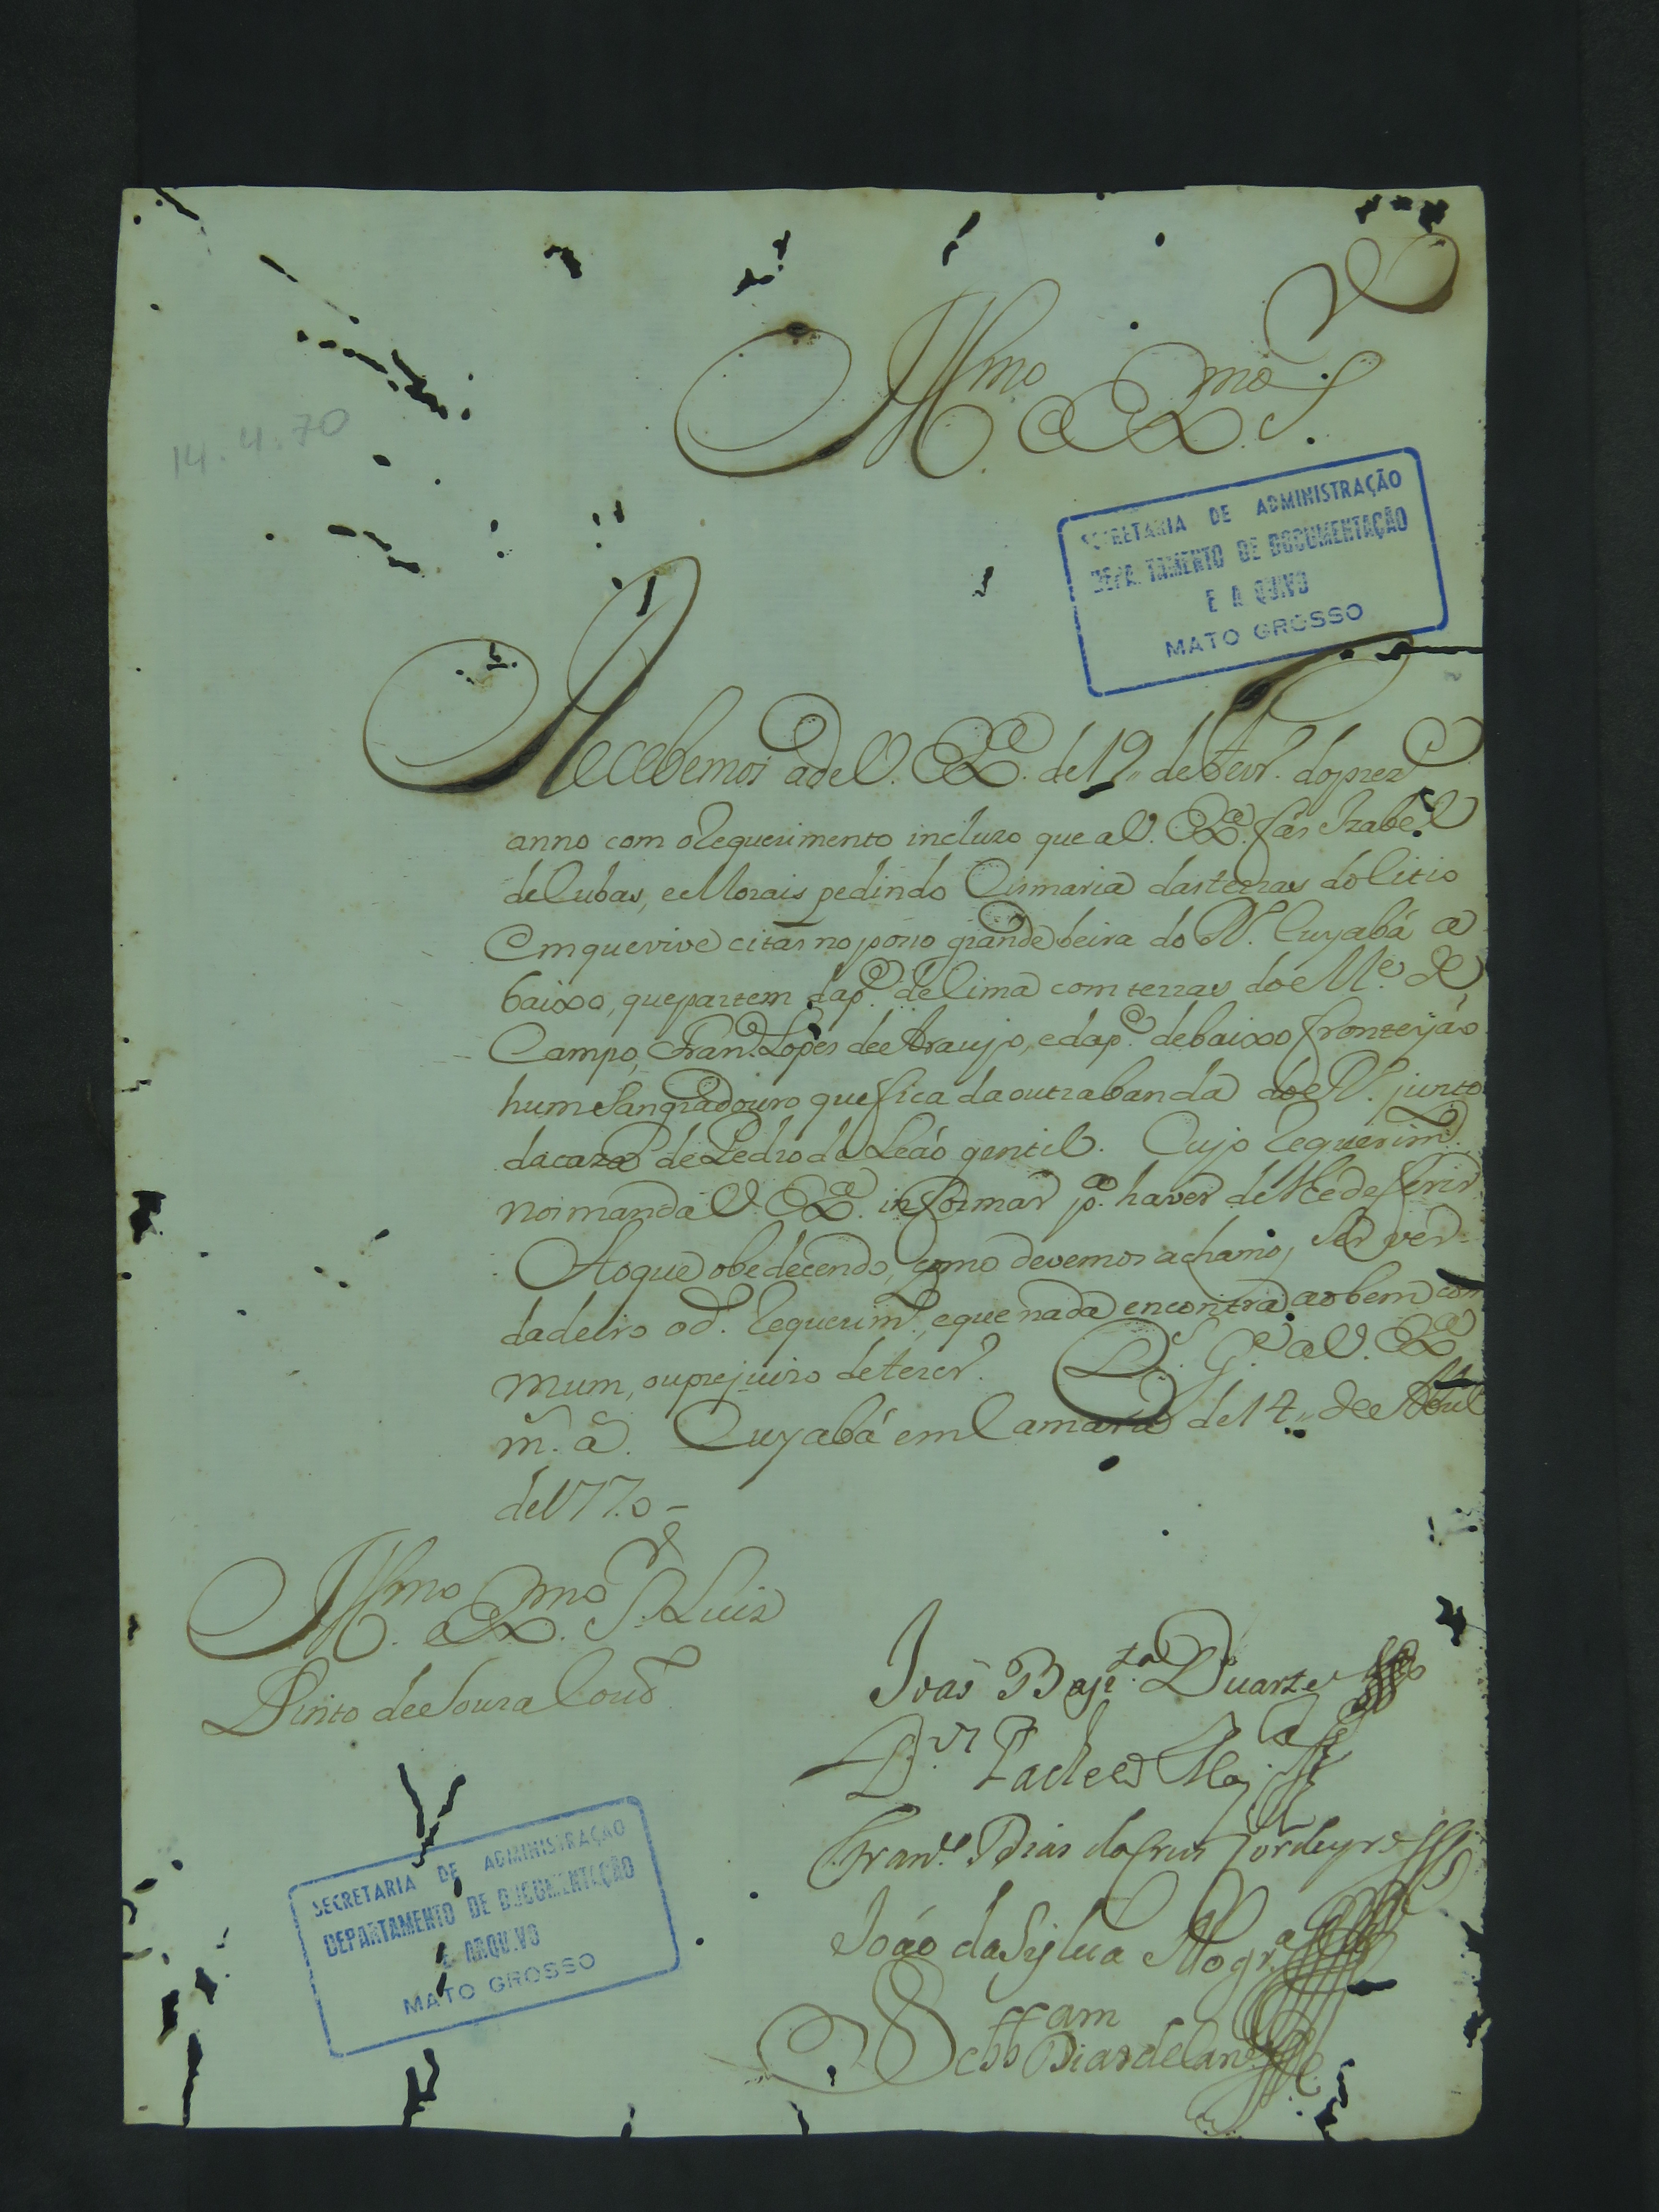 Illmo. e Exmo. Sr.
14.4.70
SECRETARIA DE ADMINISTRAÇÃO
DEPARTAMENTO DE DOCUMENTAÇÃO
E ARQUIVO
MATO GROSSO
Recebemos a de V. Exa. de 19,, de Fevr. do prezte
anno com o Requerimento incluzo que a V. Exa. fas Izabel
de Cubas, e Morais pedindo Cismaria das terras do Citio
Em que vive citas no porto grande beira do R. Cuyabá a
baixo, que partem da pe. de Cima com terras do Me. de
Campo, Franco. Lopes de Araujo, e da pe. de baixo fronteyas
hum Sangradouro que fica da outra banda do R. junto
da caza de Pedro de Leáó gentil. Cujo Requerimto.
nos manda V. Exa. informar pa. haver de lhe deferir
Ao que obedecendo, como devemos achamos, Ser ver-
dadeiro o do. Requerimto., e que nada encontra ao bem com
mum, ou prejuizo de tercro. Ds. Ge. a V. Exa
ms. as. Cuyabá em Camara de 14,, de Abril
de 1770 -
Illmo. e Exmo. Sr. Luiz
Pinto de Souza Couto
João Bapta. Duarte
Pacheco
Franco. Dias da Crus Cordeyro
João da Sylva Nogra
Sebbam Dias
SECRETARIA DE ADMINISTRAÇÃO
DEPARTAMENTO DE DOCUMENTAÇÃO
E ARQUIVO
MATO GROSSO